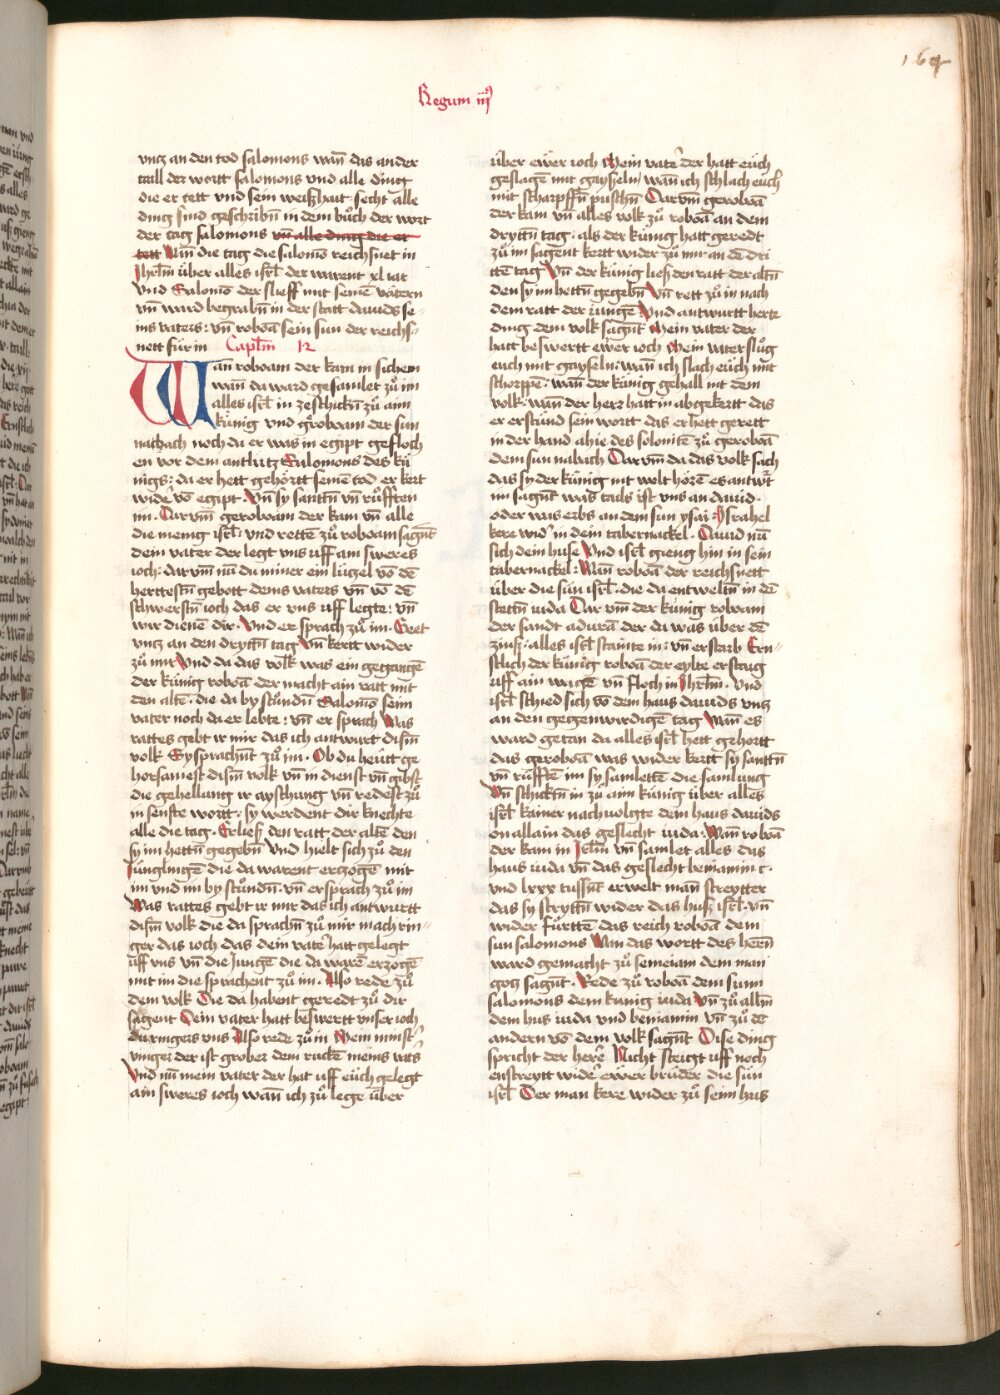 164
Regum iij
vncz an den tod salomons wañ das ander
taill der wortt salomons vnd alle ding
die er tett vnd sein weißhait secht alle
ding sind geschribñ in dem bůch der wort
der tag salomons vñ alle ding die er
tett Wañ die tag die salomō reichsnet in
Jhrl̄m über alles isrl̄ der warent xl iar
vnd Salomō der slieff mit semē vätern
vñ ward begrabñ in der statt dauids se-
ins vaters: vñ roboā sein sun der reichs-
nett für in Capl̄m 12
Wan roboam der kam in sichem
wann da ward gesamlet zů im
alles isrl̄ in zeschickñ zů aim
künig vnd gˀoboam der sun
nachach noch da er was in egipt gefloch
en vor dem antlütz Salomons des kü
nigs: da er hett gehörtt semē tod er kert
widˀ vō egipt. Vñ sy santtñ vñ růfften
im. Darvm̄ geroboam der kam vñ alle
die menig isrl̄: vnd rettē zů roboam sagñt
dein vater der legt vns uff am sweres
ioch: darvm̄ nū du miner ein lüczel vō dē
herttestñ gebott deins vaters vñ vō dē
schwerstñ ioch das er vns uff legte: vñ
wir dienē dir. Vnd er sprach zů im. Geet
vncz an den dryttñ tag Vñ kertt wider
zů mir Vnd da das volk was ein gegangē
der künig roboā der macht ain ratt mit
den altē. die da by stůndñ Salomō seim
vater noch da er lebte: vñ er sprach Was
rattes gebt ir mir das ich antwurt dism̄
volk Sy sprachñt zů im. Ob du heütt ge
horsamest dism̄ volk vñ in dienst vñ gibst
die gehellung ir ayschung vñ redest zů
in senfte wortt: sy werdent dir knechte
alle die tag. Er ließ den ratt der altē den
sy im hettñ gegebñ Vnd hielt sich zů den
Jünglingē die da warent erczogē mit
im vnd im by stůndñ. vñ er sprach zů im
Was rattes gebt ir mir das ich antwurtt
dism̄ volk die da sprachñ zů mir mach rin-
ger das ioch das dein vatˀ hatt gelegt
uff vns vñ die Jungē die da warē erzogē
mit im die sprachent zů im. Also rede zů
dem volk Die da habent geredt zů dir
sagent Dein vater hatt beswertt vnser ioch
du ringers vns Also rede zů in Mein minstˀ
vinger der ist grober dem ruckē meins vatˀs
Vnd nū mein vater der hat uff eüch gelegt
ain sweres ioch wañ ich zů lege über
über ewer ioch Mein vatˀ der hatt eüch
geslagē mit gayseln / wañ ich schlach eüch
mit scharpffñ puschñ Darvm̄ geroboā
der kam vñ alles volk zů roboā an dem
dryttñ tag. als der künig hatt geredt
zů im sagent kertt wider zů mir an dē dri
ttē tag Vñ der künig ließ den ratt der altñ
den sy im hettñ gegebñ Vñ rett zů in nach
dem ratt der iungē: Vnd antwurtt herte
ding dem volk sagñt Mein vater der
hatt beswertt ewer ioch Mein vater slůg
euch mit gayseln: wañ ich slach eüch mit
schorppē. wañ der künig gehall mit dem
volk. wañ der herr hatt in abgekertt das
er erstünd sein wortt das er hett gerett
in der hand ahie des solonite zů geroboā
dem sun nabach Darvm̄ da das volk sach
das sy der künig mt welt hörē es antwˀt
im sagñt was tails ist vns an dauid.
oder was erbs an dem sun ysai: Jsrahel
kere widˀ in dein tabernackel. Dauid nū
sich dein huse Vnd isrl̄ gieng hin in sein
tabernackel: Wañ roboā der reichsnett
über die sün isrl̄. die da entweltñ in dē
stettñ iuda Dar vm̄ der künig roboam
der sandt adurā der da was über dē
zinß. alles isrl̄ stainte in: vñ er starb Ern-
stlich der künig roboā der eylte er staig
uff ain wagē vñ floch in Jhrl̄m. vnd
isrl̄ schied sich vō dem haus dauids vncz
an den gegenwirdigē tag Wañ es
ward getan da alles isrl̄ hett gehortt
das geroboā was wider kertt sy santtñ
vñ růfftē im sy samlettē die samlung
Vñ schicktñ in zů aim künig über alles
isrl̄ kainer nachvolgte dem haus dauids
on allain das geslecht iuda. Wañ roboā
der kam in Jrl̄m vñ samlet alles das
haus iuda vñ das geslecht beniamin c.
vnd lxxx tussñt erwelt mañ streytter
das sy stryttñ wider das huß isrl̄. vñ
wider fürttē das reich roboā dem
sun salomons Wan das wortt des herñ
ward gemacht zů semeiam dem man
gotz sagñt. Rede zů roboā dem sunn
salomons dem kunig iuda Vñ zů allñ
dem hus iuda vnd beniamin vñ zů dē
andern vō dem volk sagñt Dise ding
spricht der herˀe Nicht steigt uff noch
enstreytt widˀ ewer brüder die sün
isrl̄ Der man kere wider zů seim hus